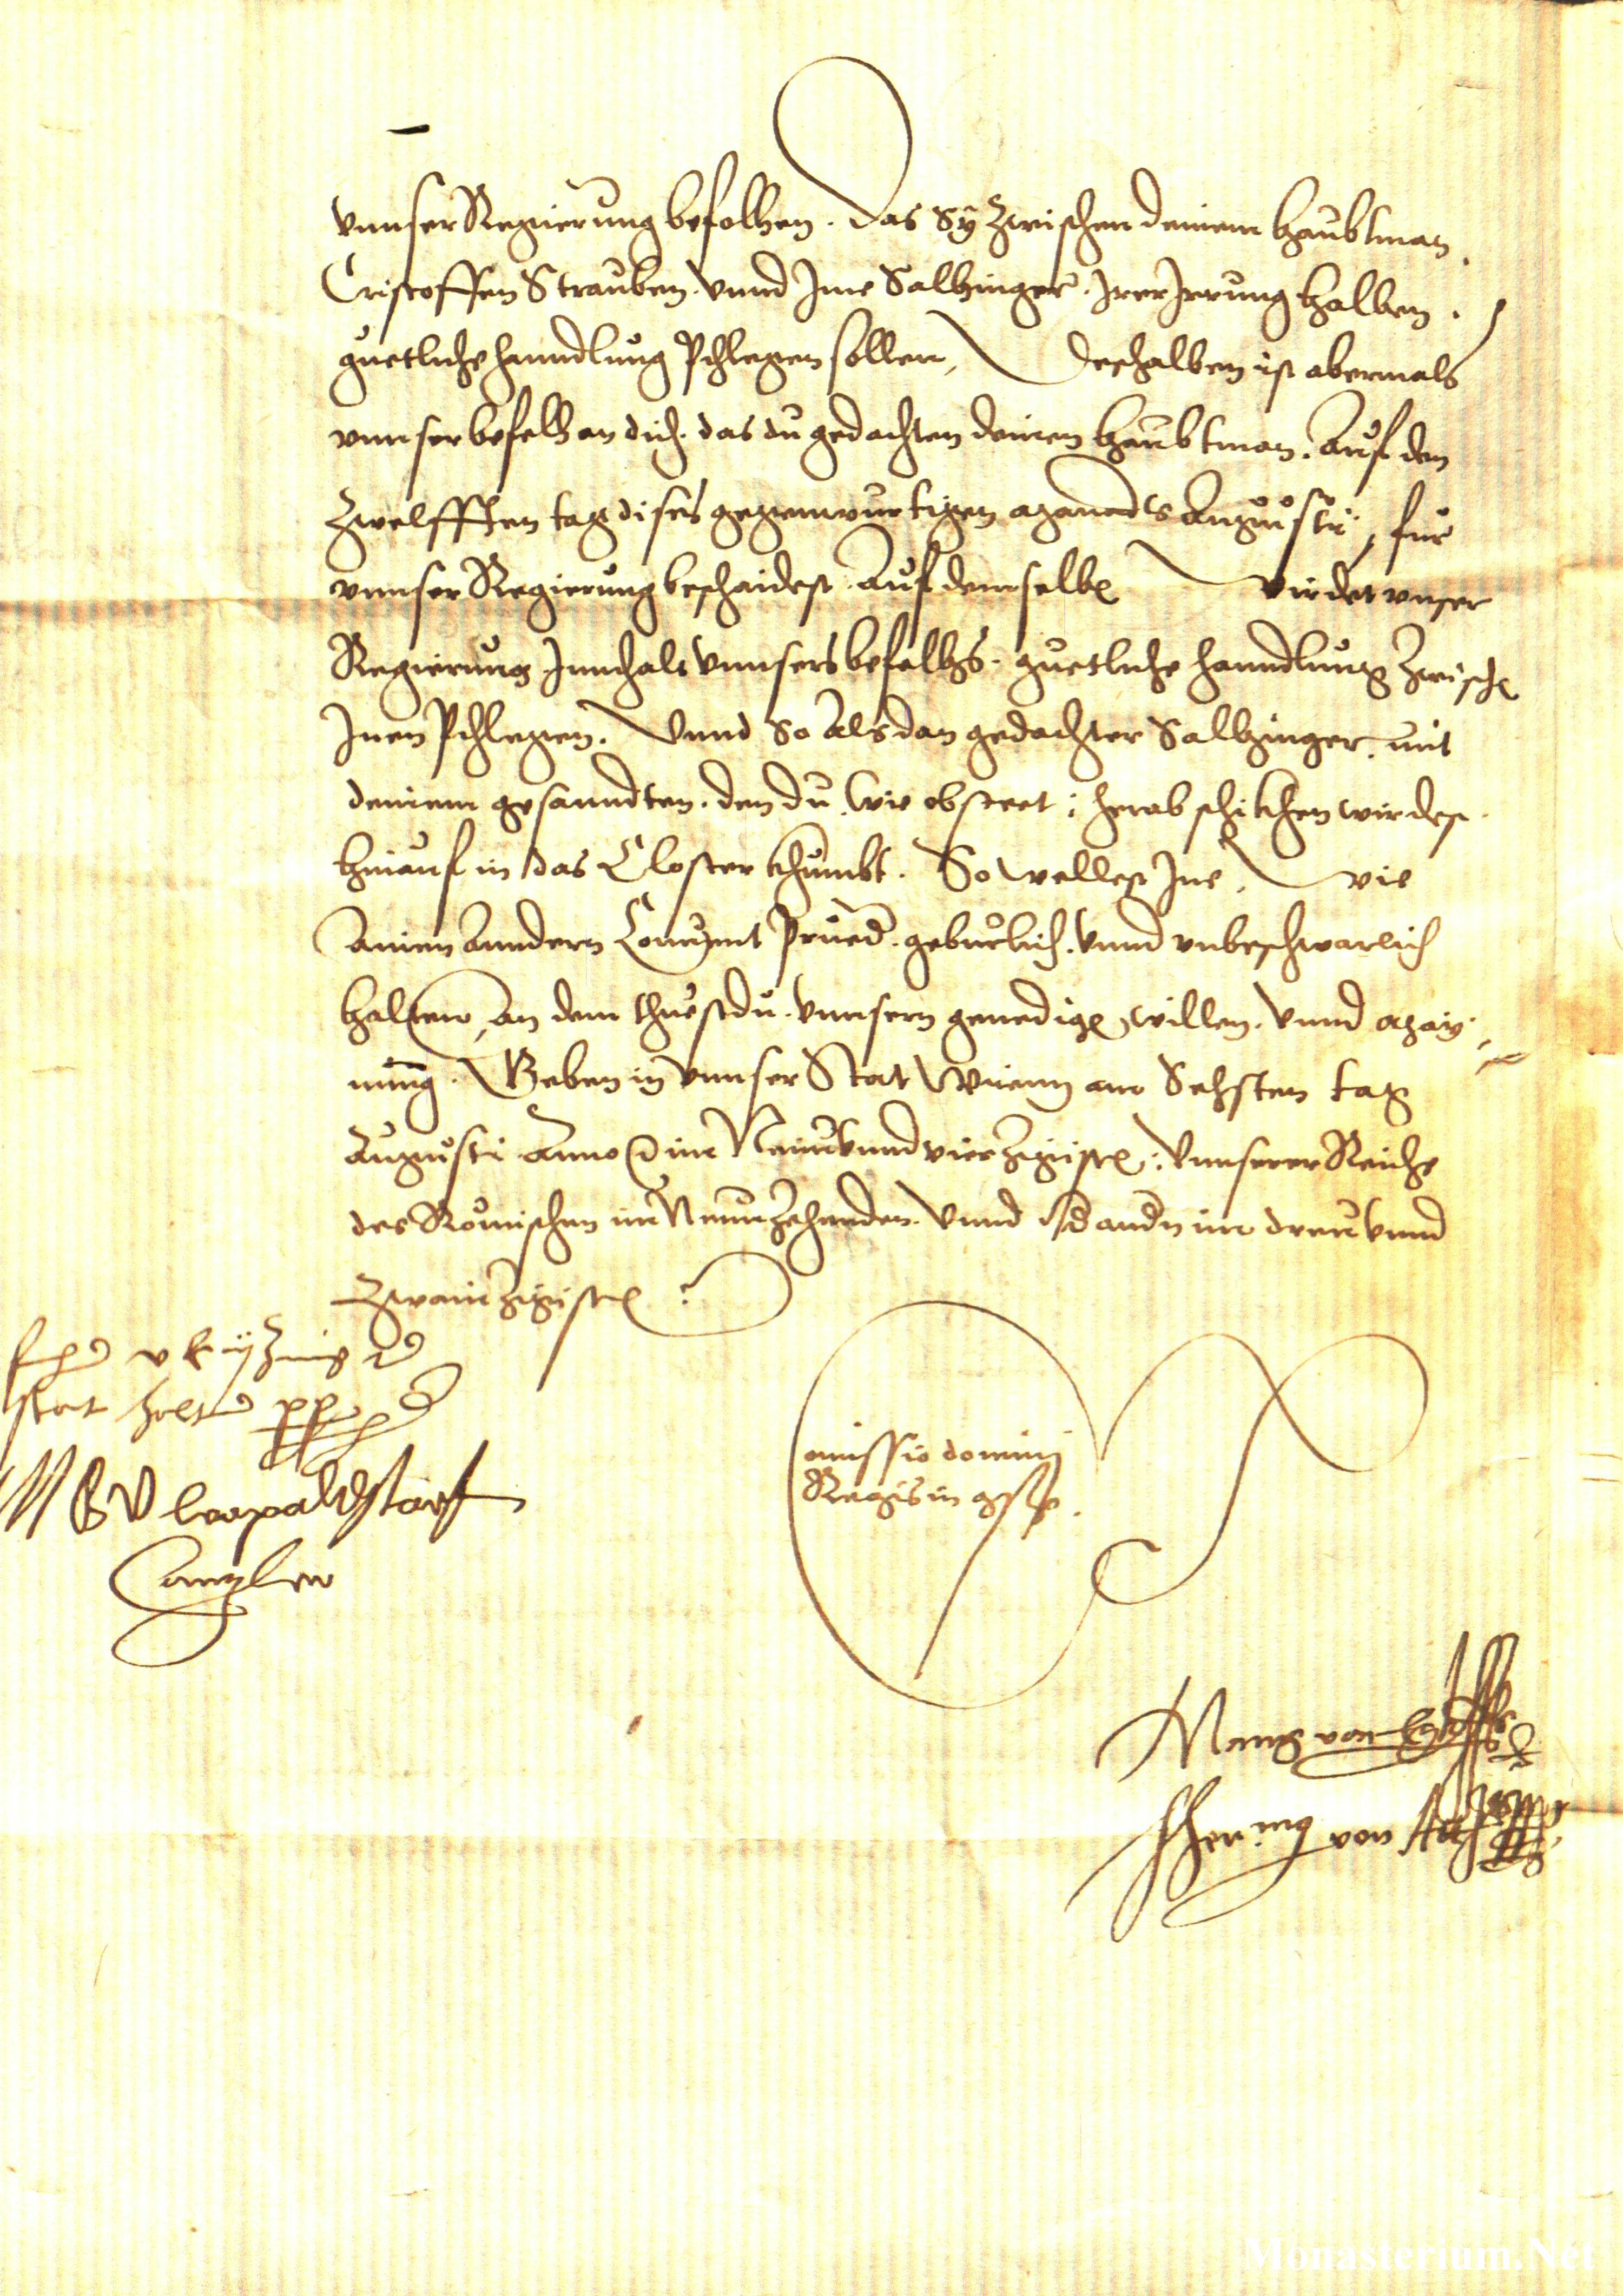 vnnser Regierung befolhen. Das Sy zwischen deinem haubtman.
Cristoffen Strauben. vnnd Ime Saltzinger. Irer Irrung halben.
guetliche hanndlung Phlegen sollen, Deshalben ist abermals
vnnser befelh an dich. das du gedachten deinen haubtman. Auf den
zwelfften tag dises gegenwurtigen Monadts Augusti, fur
vnnser Regierung beschaidest. Auf demselbe wirdet vnser
Regierung Innhalt vnnsers befelhs. guetliche hanndlung zwische
Inen Phlegen. Vnnd so Alsdan gedachter Saltzinger. mit
deinem gesanndten. den du wie obsteet; herab schikhen wirdest.
hinauf in das Closter khumbt. So wellest Ine, wie
Ainen Anndern Conuent Prued. geburlich. vnnd vnbeschwarlich
halten, An dem thuestdu. vnnsern genedige willen. vnnd May-
nung. Geben in vnnser Stat Wienn am Sechsten tag
Augusti Anno im Neunvnnduierzigiste: Vnnserer Reiche
des Romischen im Neunzehenden. Vnnd d andn im dreuvnnd
zwainzigiste
stat halt
leopoldstorf
Canzler
omissio domini
Regis in
von
von
Monasterium.Net